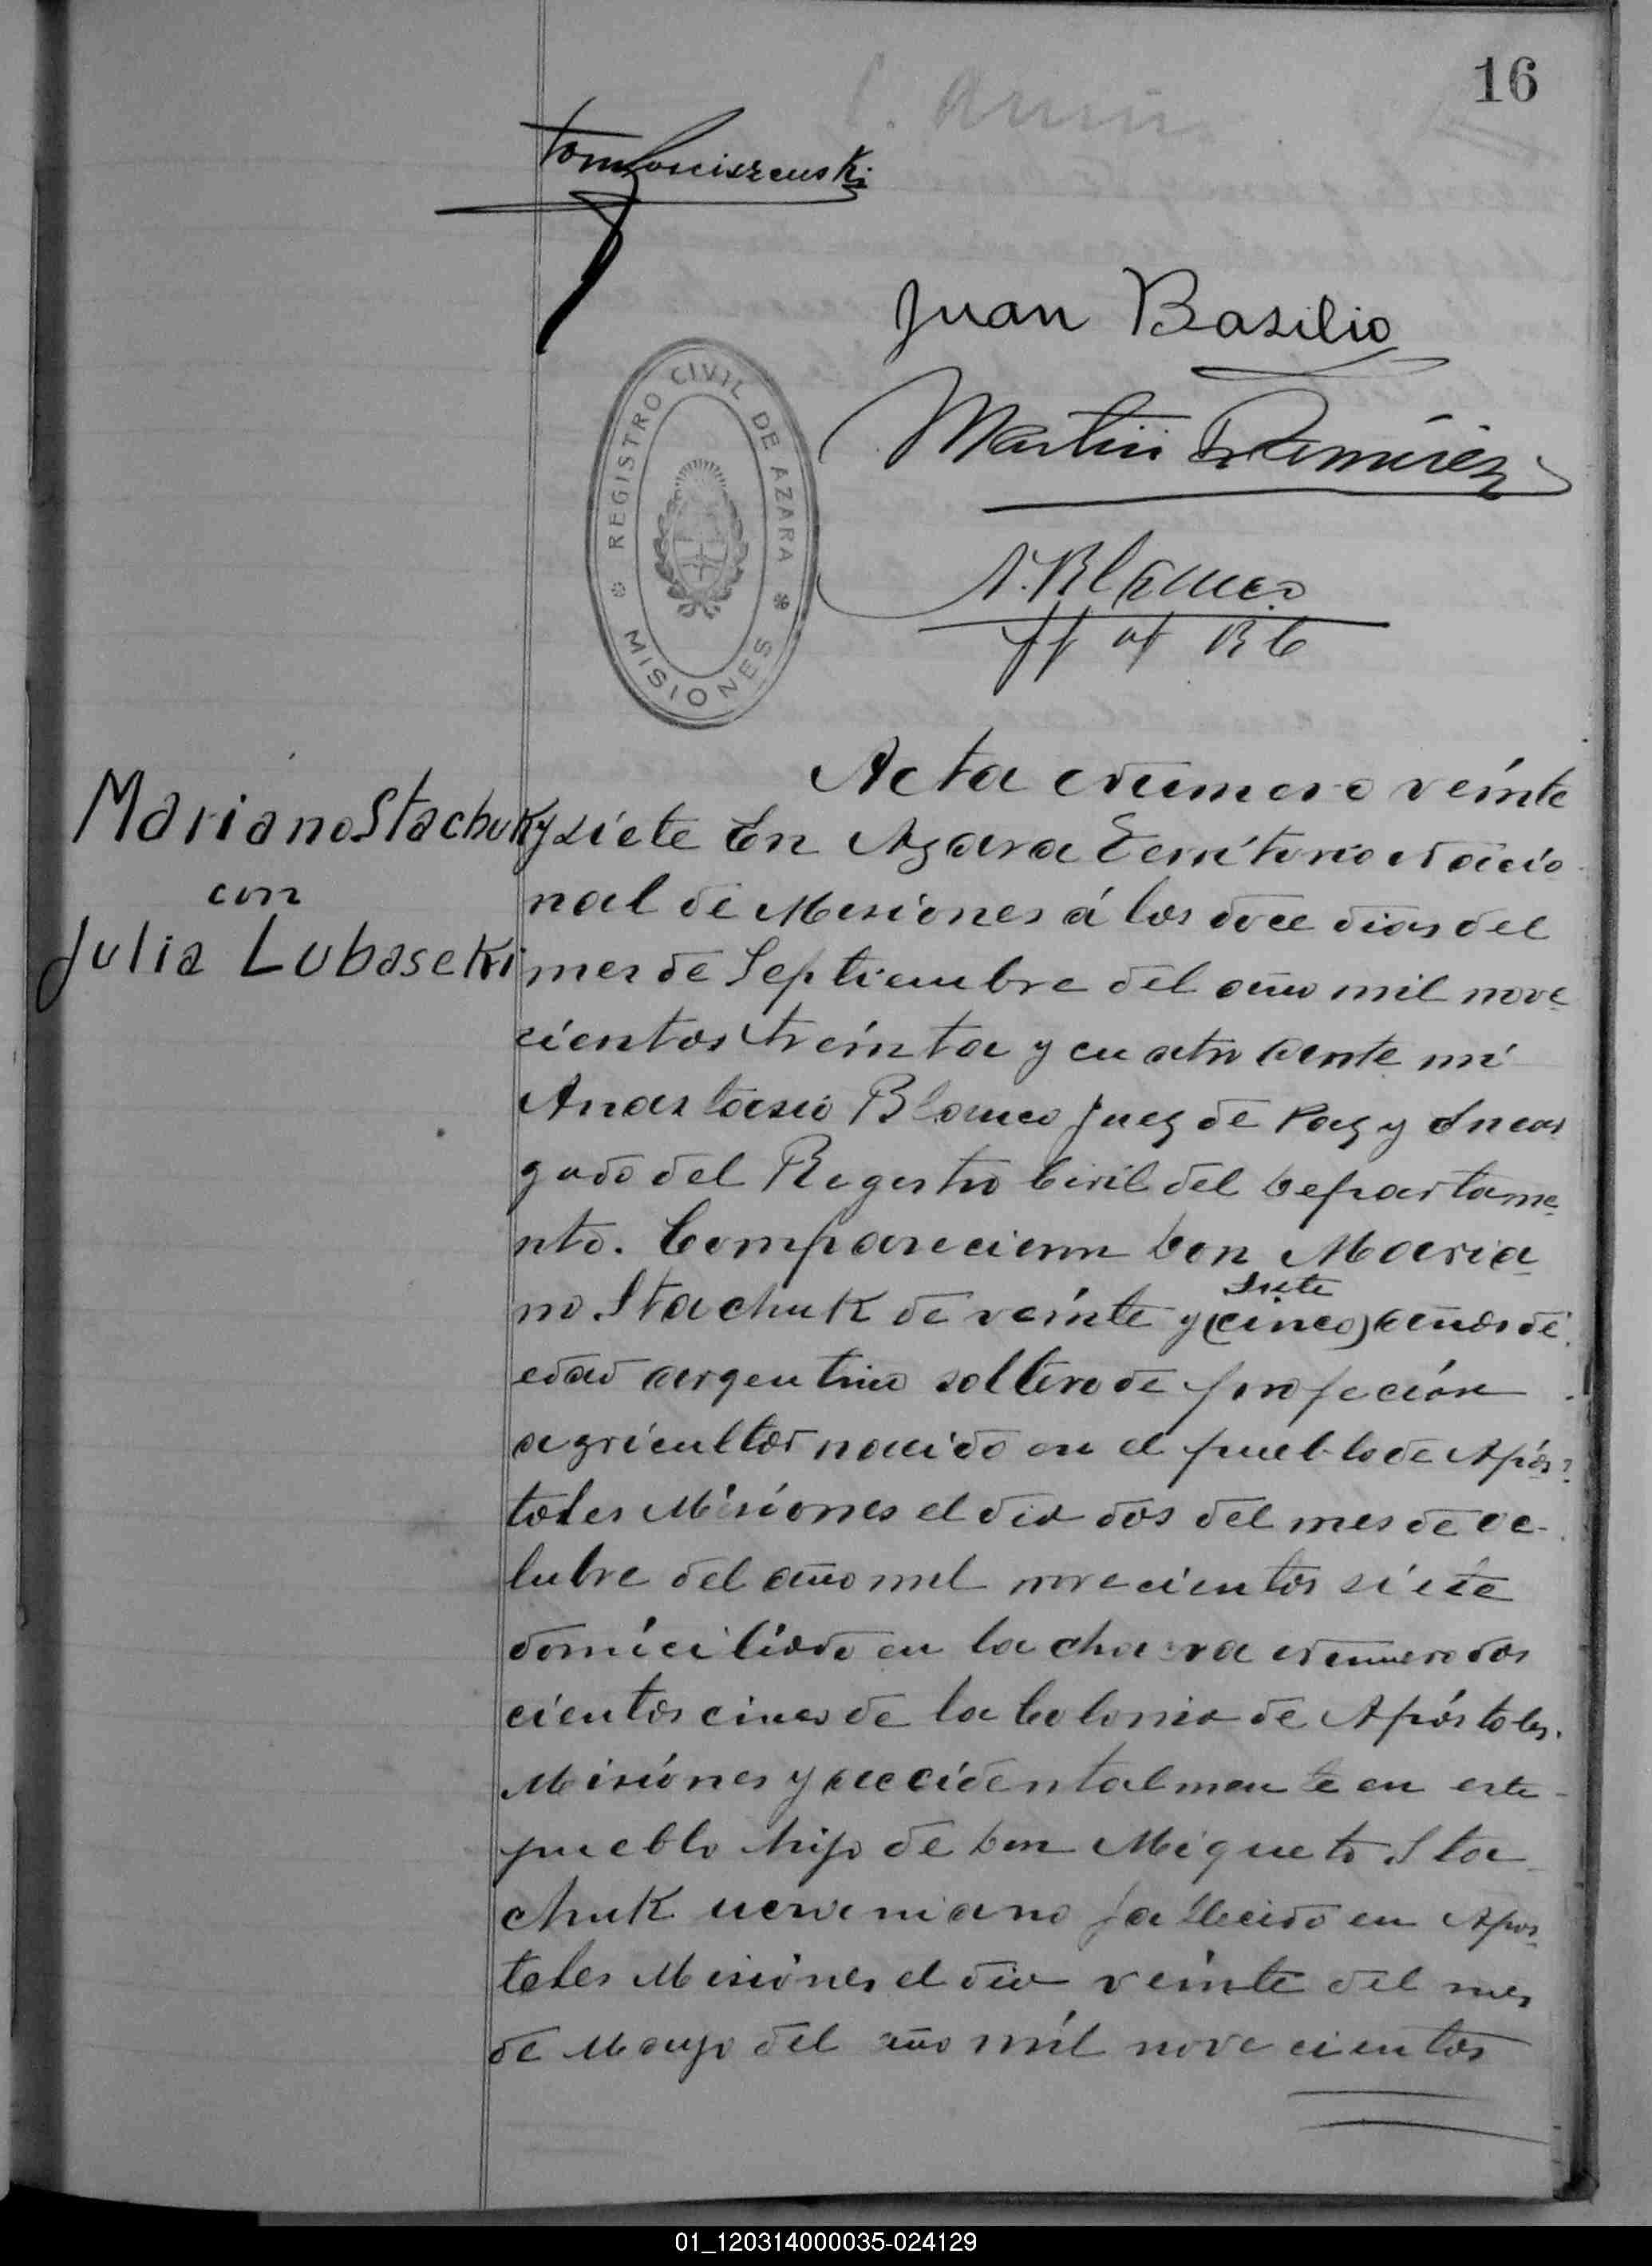 16
Juan Basilio
Martin Ramírez
A. Blanco
REGISTRO CIVIL DE AZARA
MISIONES
Mariano Stachuk
con
Julia Lubaseki
Acta Número veinte
y siete En Azara Territorio Nacio
nal de Misiones á los doce dias del
mes de Septiembre del año mil nove
cientos treinta y cuatro ante mi
Anastasio Blanco Juez de Paz y Encar
gado del Registro Civil del Departame
nto. Comparecieron Don Maria
no Stachuk de veinte y (cinco) siete años de
edad argentino soltero de profeción
agricultor nacido en el pueblo de Após
toles Misiones el dia dos del mes de Oc-
tubre del año mil novecientos siete
domiciliado en la chacra Número dos
cientos cinco de la Colonia de Apóstoles.
Misiónes y accidentalmente en este
pueblo hijo de Don Migueto Sta
chuk ucraniano fallecido en Apos
toles Misiónes el dia veinte del mes
de Mayo del año mil novecientos
01_120314000035-024129